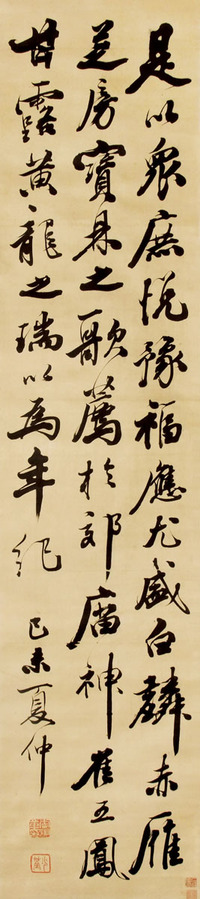 是以衆庶悅豫福應尤盛白麟赤雁
芝房寶鼎之歌薦於郊廟神雀五鳳
甘露黃龍之瑞以為年紀
己未夏仲